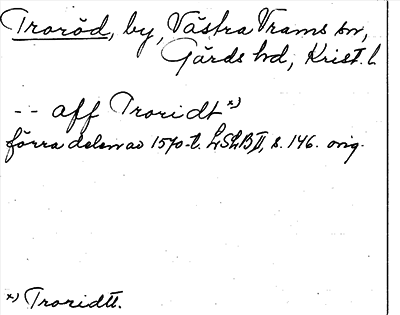 Troröd, by, Västra Vrams sn,
Gärds hd, Krist. l.
-- aff Troridt x)
förra delen av 1570-t. LSLB II, s. 146. orig.
x) Troridtt.